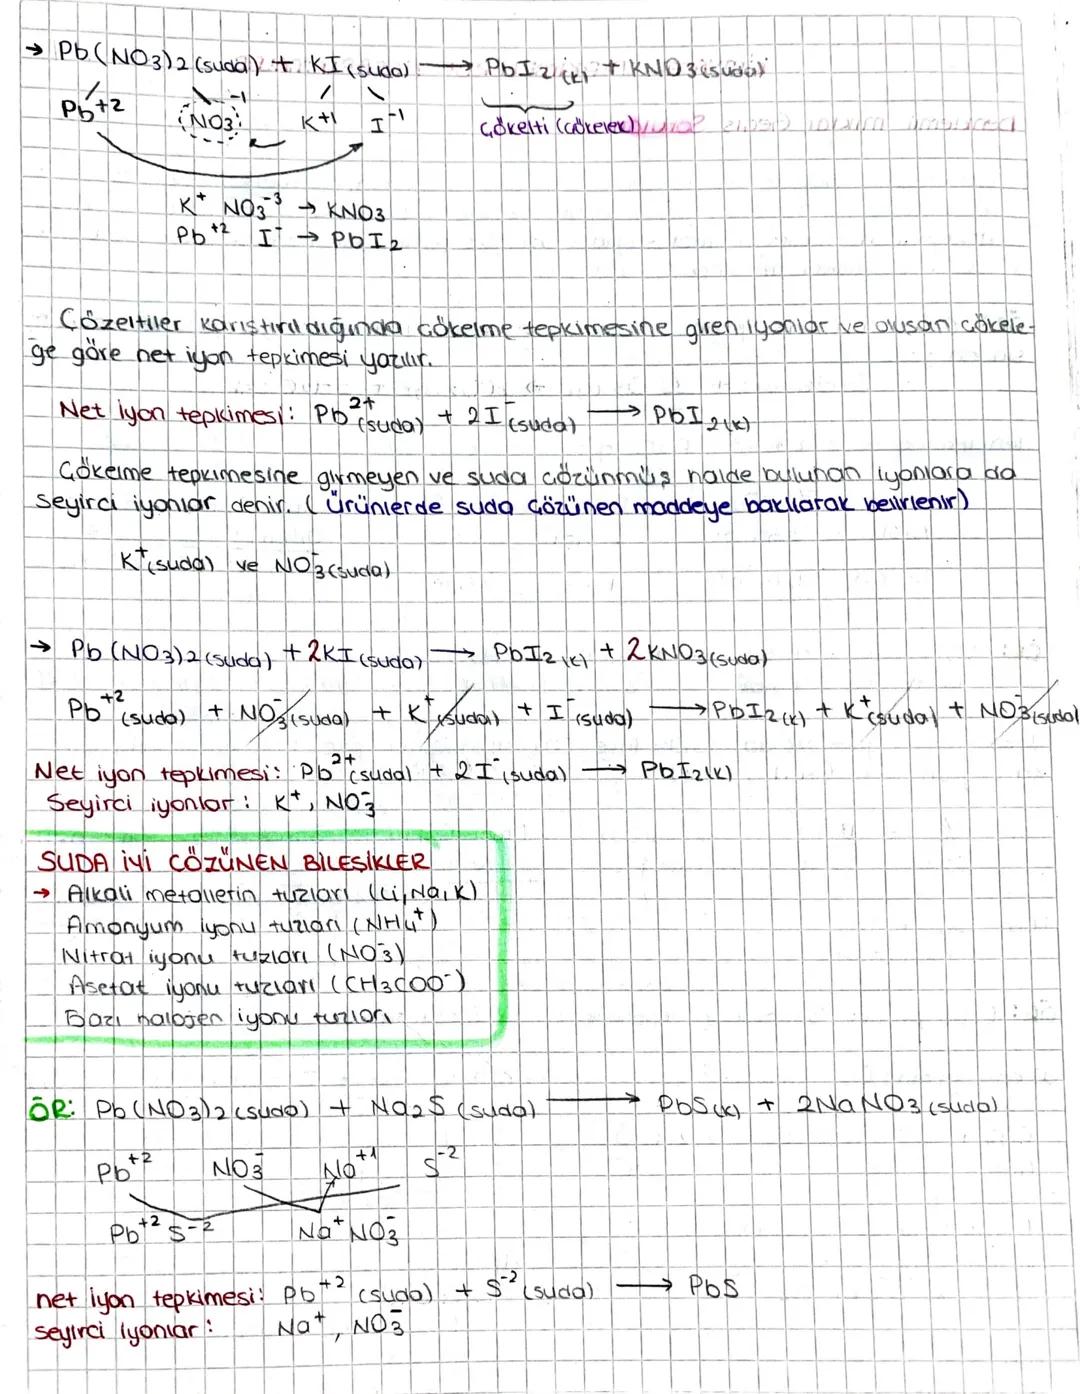 → Pb(NO3)2(suda) + KI(suda) → PbI2(k) + KNO3(suda)
Pb+2 NO3-1 K+1 I-1 Çökelti (çökelek)
K+ NO3-3 → KNO3
Pb+2 I- → PbI2
Çözeltiler karıştırıldığında çökelme tepkimesine giren iyonlar ve oluşan çökele-
ğe göre net iyon tepkimesi yazılır.
Net iyon tepkimesi: Pb2+(suda) + 2I-(suda) → PbI2(k)
Çökelme tepkimesine girmeyen ve suda çözünmüş halde bulunan iyonlara da
seyirci iyonlar denir. (Ürünlerde suda çözünen maddeye bakılarak belirlenir)
K+(suda) ve NO3-(suda)
→ Pb(NO3)2(suda) + 2KI(suda) → PbI2(k) + 2KNO3(suda)
Pb+2(suda) + NO3-(suda) + K+(suda) + I-(suda) → PbI2(k) + K+(suda) + NO3-(suda)
Net iyon tepkimesi: Pb2+(suda) + 2I-(suda) → PbI2(k)
Seyirci iyonlar: K+, NO3-
SUDA İYİ ÇÖZÜNEN BİLEŞİKLER
→ Alkali metallerin tuzları (Li, Na, K)
Amonyum iyonu tuzları (NH4+)
Nitrat iyonu tuzları (NO3-)
Asetat iyonu tuzları (CH3COO-)
Bazı halojen iyonu tuzları
ÖR: Pb(NO3)2(suda) + Na2S(suda) → PbS(k) + 2NaNO3(suda)
Pb+2 NO3- Na+1 S-2
Pb+2 S-2 Na+ NO3-
net iyon tepkimesi: Pb+2(suda) + S-2(suda) → PbS
seyirci iyonlar: Na+, NO3-